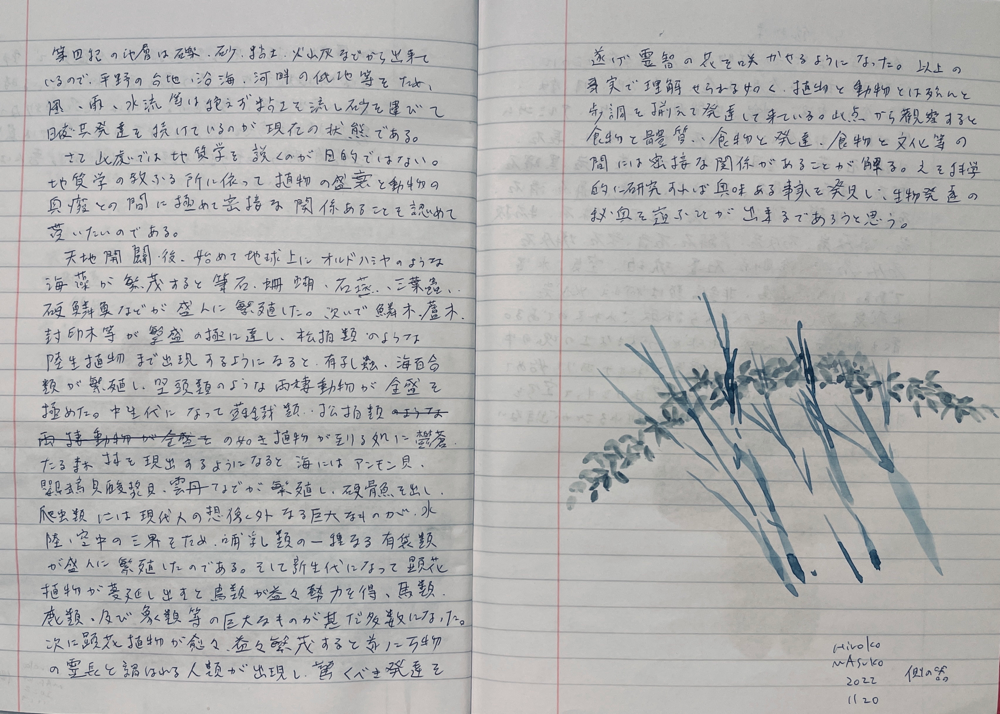 第四紀の地層は礫、砂、粘土、火山灰などから出来て
いるので、平野の台地、沿海、河畔の低地等をため、
風、雨、水流等は絶えず粘土を流し砂を運びて
日發達を続けているのが現在の状態である。
さて此處では地質学を説くのが目的ではない。
地質学の教ふる所に依って植物の盛衰と動物の
興廢との間に極めて密接な関係あることを認めて
貰いたいのである。
天地開闢後、始めて地球上にオルドハミヤのような
海藻が繁茂すると筆石、珊瑚、石蚕、三葉蟲、
硬鱗魚などが盛んに繁殖した。次いで鱗木、蘆木、
封印木等が繁盛の極に達し、松柏類のような
陸生植物まで出現するようになると、有孔蟲、海百合
類が繁殖し、堅頭類のような両棲動物が全盛を
極めた。中生代になって蘇鉄類、松柏類のような
両棲動物が全盛を の如き植物が到る処に鬱蒼
たる森林を現出するようになると海にはアンモン貝、
鸚鵡貝、雲丹などが繁殖し、硬骨魚を出し、
爬虫類には現代人の想像外なる巨大なものが、水
陸、空中の三界をため、哺乳類の一種なる有袋類
が盛んに繁殖したのである。そして新生代になって顕花
植物が蔓延し出すと鳥類が益々勢力を得、馬類、
鹿類、及び象類等の巨大なものが甚だ多数になった。
次に顕花植物が愈々益々繁茂すると茲に万物
の霊長と謂はれる人類が出現し、驚くべき発達を
遂げ霊智の花を咲かせるようになった。以上の
事実で理解せられる如く、植物と動物とはほとんと
歩調を揃えて発達して来ている。此点から観察すると
食物と體質、食物と発達、食物と文化等の
間には密接な関係があることが解る。之を科学
的に研究すれば興味ある事実を発見し、生物発達の
秘奥を窺ふことが出来るであろうと思う。
Hiroko
MAsuko
2022
11 20